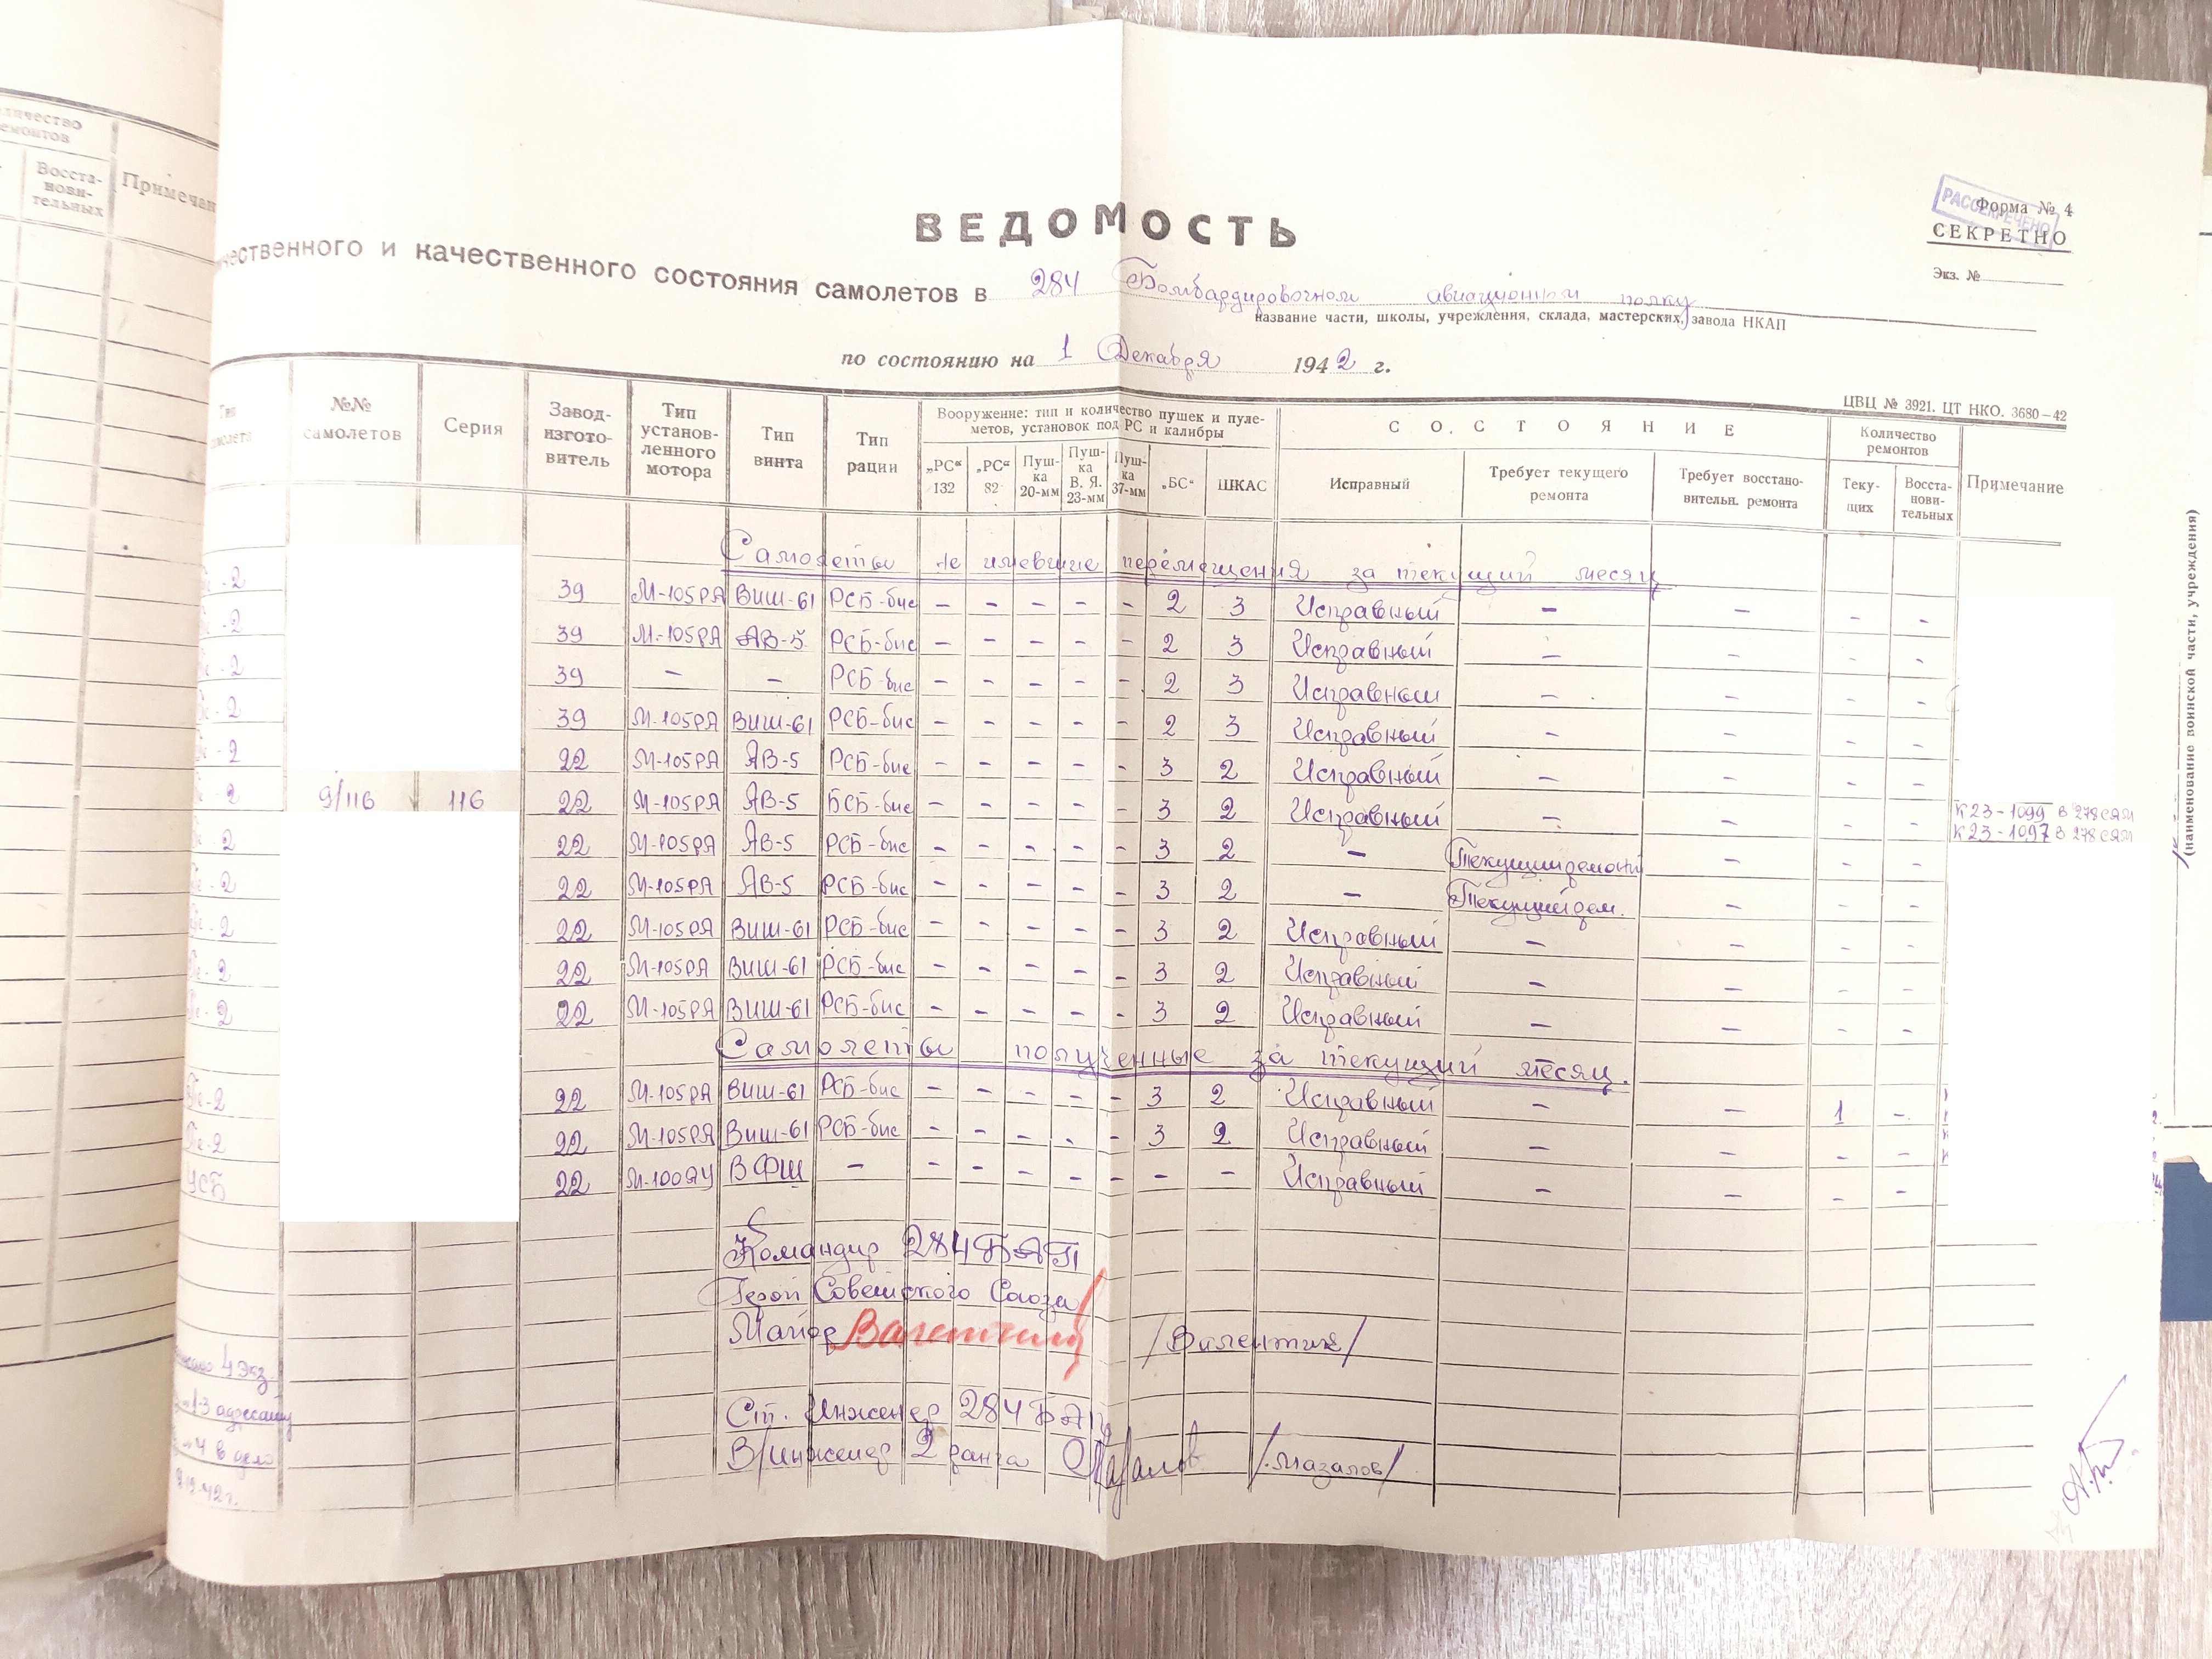 ВЕДОМОСТЬ
Форма № 4
РАССЕКРЕЧЕНО
СЕКРЕТНО
Экз. №
чественного и качественного состояния самолетов в 284 Бомбардировочном авиационном полку
название части, школы, учреждения, склада, мастерских, завода НКАП
по состоянию на 1 Декабря 1942 г.
ЦВЦ № 3921. ЦТ НКО. 3680–42
личество ремонтов
Восста-нови-тельных
Примечан
Тип самолета
№№ самолетов
Серия
Завод-изгото-витель
Тип установ-ленного мотора
Тип винта
Тип рации
Вооружение: тип и количество пушек и пуле-метов, установок под РС и калибры
„РС“ 132
„РС“ 82
Пуш-ка 20-мм
Пуш-ка В. Я. 23-мм
Пуш-ка 37-мм
„БС“
ШКАС
СОСТОЯНИЕ
Исправный
Требует текущего ремонта
Требует восстано-вительн. ремонта
Количество ремонтов
Теку-щих
Восста-нови-тельных
Примечание
Самолеты не имевшие перемещения за текущий месяц
Пе-2 39 М-105РА ВИШ-61 РСБ-бис – – – – – 2 3 Исправный – – – –
Пе-2 39 М-105РА АВ-5 РСБ-бис – – – – – 2 3 Исправный – – – –
Пе-2 39 – – РСБ-бис – – – – – 2 3 Исправный – – – –
Пе-2 39 М-105РА ВИШ-61 РСБ-бис – – – – – 2 3 Исправный – – – –
Пе-2 22 М-105РА АВ-5 РСБ-бис – – – – – 3 2 Исправный – – – –
Пе-2 9/116 116 22 М-105РА АВ-5 БСБ-бис – – – – – 3 2 Исправный – – – – К23-1099 в 278 САМ
К23-1097 в 278 САМ
Пе-2 22 М-105РА АВ-5 РСБ-бис – – – – – 3 2 – Текущий ремонт – – –
Пе-2 22 М-105РА АВ-5 РСБ-бис – – – – – 3 2 – Текущий рем. – – –
Пе-2 22 М-105РА ВИШ-61 РСБ-бис – – – – – 3 2 Исправный – – – –
Пе-2 22 М-105РА ВИШ-61 РСБ-бис – – – – – 3 2 Исправный – – – –
Пе-2 22 М-105РА ВИШ-61 РСБ-бис – – – – – 3 2 Исправный – – – –
Самолеты полученные за текущий месяц.
Пе-2 22 М-105РА ВИШ-61 РСБ-бис – – – – – 3 2 Исправный – – 1 –
Пе-2 22 М-105РА ВИШ-61 РСБ-бис – – – – – 3 2 Исправный – – – –
УСБ 22 М-100АУ ВФШ – – – – – – – – Исправный – – – –
Командир 284 БАП
Герой Советского Союза
Майор Валентик /Валентик/
Ст. Инженер 284 БАП
В/инженер 2 ранга Мазалов /Мазалов/
4 экз
1-3 адресату
4 в дело
2.12.42 г.
(наименование воинской части, учреждения)